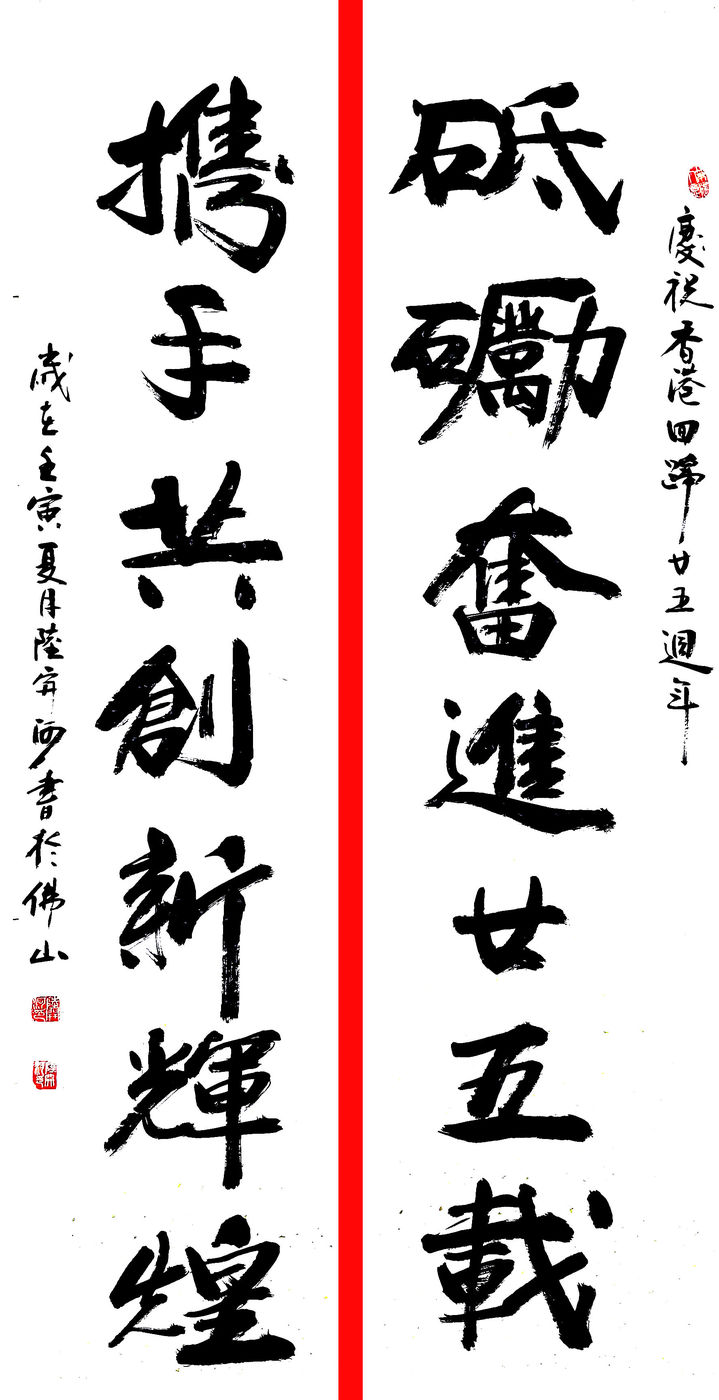 慶祝香港回歸廿五週年
砥礪奮進廿五載
攜手共創新輝煌
歲在壬寅夏月陸穽河書於佛山